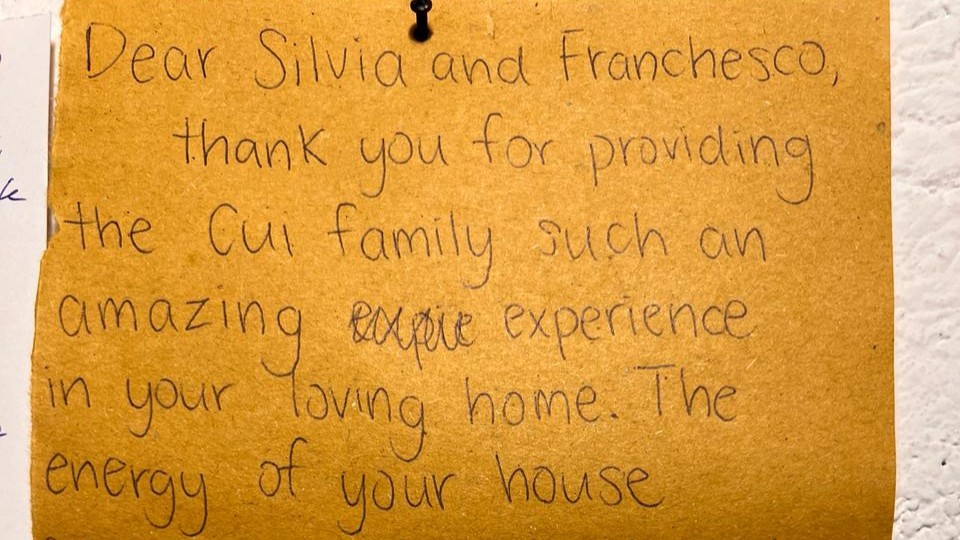 Dear Silvia and Franchesco,
thank you for providing
the Cui family such an
amazing experience
in your loving home. The
energy of your house